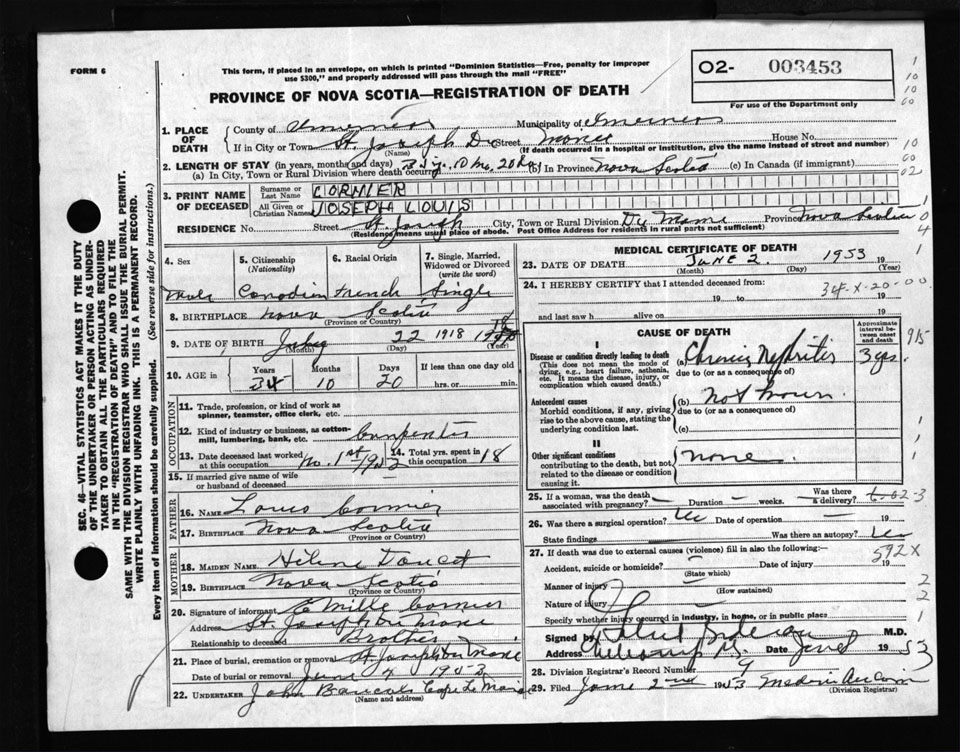 FORM 6
This form, if placed in an envelope, on which is printed "Dominion Statistics—Free, penalty for improper
use $300," and properly addressed will pass through the mail "FREE"
02- 003453
For use of the Department only
PROVINCE OF NOVA SCOTIA—REGISTRATION OF DEATH
1. PLACE OF DEATH
County of Inverness Municipality of Inverness
If in City or Town St. Joseph Du Street Moine House No.
(Name) (If death occurred in a hospital or institution, give the name instead of street and number)
2. LENGTH OF STAY (in years, months and days)
(a) In City, Town or Rural Division where death occurred 10 Mo. 20 (b) In Province Nova Scotia (c) In Canada (if immigrant)
3. PRINT NAME OF DECEASED
Surname or Last Name CORMIER
All Given or Christian Names JOSEPH LOUIS
RESIDENCE No. Street St. Joseph City, Town or Rural Division Du Moine Province Nova Scotia
(Residence means usual place of abode. Post Office Address for residents in rural parts not sufficient)
4. Sex
Male
5. Citizenship (Nationality)
Canadian
6. Racial Origin
French
7. Single, Married, Widowed or Divorced (write the word)
Single
8. BIRTHPLACE Nova Scotia
(Province or Country)
9. DATE OF BIRTH July 22 1918
(Month) (Day) (Year)
10. AGE
Years 34
Months 10
Days 20
If less than one day old
hrs. or min.
OCCUPATION
11. Trade, profession, or kind of work as
spinner, teamster, office clerk, etc.
12. Kind of industry or business, as cotton-
mill, lumbering, bank, etc. Carpenter
13. Date deceased last worked at this occupation 1st 1952
14. Total yrs. spent in this occupation 18
15. If married give name of wife
or husband of deceased
FATHER
16. NAME Louis Cormier
17. BIRTHPLACE Nova Scotia
(Province or Country)
MOTHER
18. MAIDEN NAME Doucet
19. BIRTHPLACE Nova Scotia
(Province or Country)
20. Signature of informant Cormier
Address St. Joseph du Moine
Relationship to deceased Brother
21. Place of burial, cremation or removal St. Joseph du Moine
Date of burial or removal June 4 1953
22. UNDERTAKER John
(Name and address)
MEDICAL CERTIFICATE OF DEATH
23. DATE OF DEATH JUNE 2. 1953 19
(Month) (Day) (Year)
24. I HEREBY CERTIFY that I attended deceased from:
34-X-20-00
19 to 19
and last saw h alive on 19
CAUSE OF DEATH
Approximate interval between onset and death
I
Disease or condition directly leading to death
(This does not mean the mode of
dying, e.g., heart failure, asthenia,
etc. It means the disease, injury, or
complication which caused death.)
(a) Chronic Nephritis 3 yrs.
due to (or as a consequence of)
Antecedent causes
Morbid conditions, if any, giving
rise to the above cause, stating the
underlying condition last.
(b) Not known.
due to (or as a consequence of)
(c)
II
Other significant conditions
contributing to the death, but not
related to the disease or condition
causing it.
none
25. If a woman, was the death associated with pregnancy? — Duration — weeks. Was there a delivery?
26. Was there a surgical operation? Date of operation — 19
State findings Was there an autopsy?
592X
27. If death was due to external causes (violence) fill in also the following:—
Accident, suicide or homicide? Date of injury 19
(State which)
Manner of injury
(How sustained)
Nature of injury
Specify whether injury occurred in industry, in home, or in public place
Signed by M.D.
Address Date June 1953
28. Division Registrar's Record Number 9
29. Filed June 2nd 1953
(Division Registrar)
SEC. 46—VITAL STATISTICS ACT MAKES IT THE DUTY
OF THE UNDERTAKER OR PERSON ACTING AS UNDER-
TAKER TO OBTAIN ALL THE PARTICULARS REQUIRED
IN THE "REGISTRATION OF DEATH" AND TO FILE THE
SAME WITH THE DIVISION REGISTRAR WHO SHALL ISSUE THE BURIAL PERMIT.
WRITE PLAINLY WITH UNFADING INK. THIS IS A PERMANENT RECORD.
Every item of information should be carefully supplied. (See reverse side for instructions.)